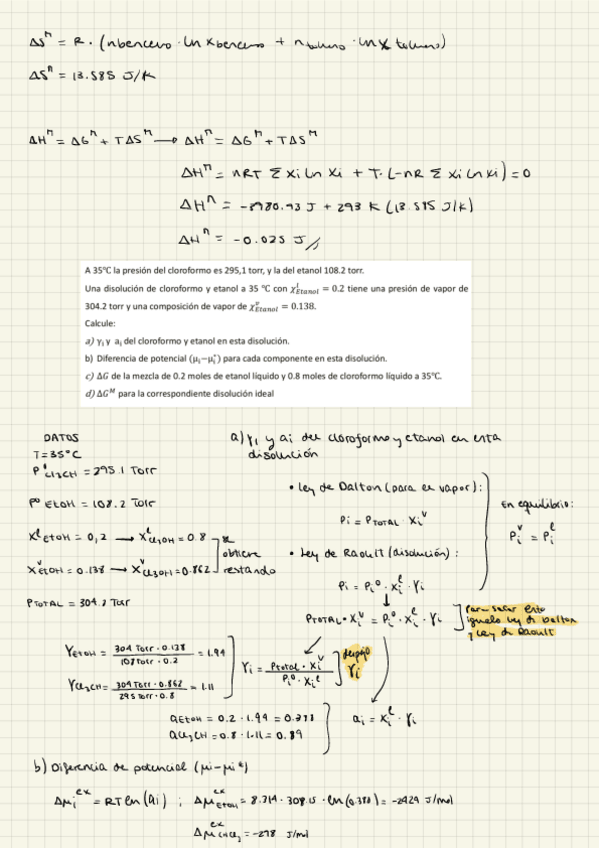 ΔSᵐ = R · (nbenceno · ln xbenceno + ntolueno · ln x tolueno)
ΔSᵐ = 13.585 J/K
ΔHᵐ = ΔGᵐ + TΔSᵐ → ΔHᵐ = ΔGᵐ + TΔSᵐ
ΔHᵐ = nRT Σ xi ln xi + T· (-nR Σ xi ln xi) = 0
ΔHᵐ = -3980.93 J + 293 K (13.585 J/K)
ΔHᵐ = -0.025 J//
A 35°C la presión del cloroformo es 295,1 torr, y la del etanol 108.2 torr.
Una disolución de cloroformo y etanol a 35 °C con χˡEtanol = 0.2 tiene una presión de vapor de
304.2 torr y una composición de vapor de χᵛEtanol = 0.138.
Calcule:
a) γi y ai del cloroformo y etanol en esta disolución.
b) Diferencia de potencial (μi−μi*) para cada componente en esta disolución.
c) ΔG de la mezcla de 0.2 moles de etanol líquido y 0.8 moles de cloroformo líquido a 35°C.
d) ΔGᴹ para la correspondiente disolución ideal
DATOS
T = 35°C
P°Cl3CH = 295.1 Torr
P° EtOH = 108.2 Torr
XˡEtOH = 0,2 → XˡCl3OH = 0.8
XᵛEtOH = 0.138 → XᵛCl3OH = 0.862
se
obtiene
restando
PTOTAL = 304.2 Torr
a) γi y ai del cloroformo y etanol en esta
disolución
• Ley de Dalton (para el vapor):
Pi = PTOTAL · Xiᵛ
• Ley de Raoult (disolución):
Pi = Pi° · Xiˡ · γi
En equilibrio:
Piᵛ = Piˡ
PTOTAL · Xiᵛ = Pi° · Xiˡ · γi
Para sacar esto
igualo ley de Dalton
y Ley de Raoult
γEtOH = 304 Torr · 0.138 / 108 Torr · 0.2 = 1.94
γCl3CH = 304 Torr · 0.862 / 295 Torr · 0.8 = 1.11
γi = Ptotal · Xiᵛ / Pi° · Xiˡ
despejo
γi
aEtOH = 0.2 · 1.94 = 0.388
aCl3CH = 0.8 · 1.11 = 0.89
ai = Xiˡ · γi
b) Diferencia de potencial (μi-μi*)
Δμiᵉˣ = RT ln (ai) ; ΔμᵉˣEtOH = 8.314 · 308.15 · ln (0.388) = -2424 J/mol
ΔμᵉˣCHCl3 = -278 J/mol